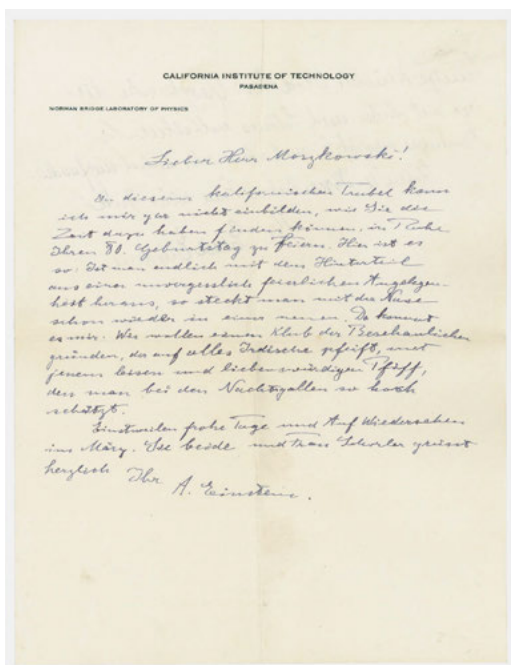 CALIFORNIA INSTITUTE OF TECHNOLOGY
PASADENA
NORMAN BRIDGE LABORATORY OF PHYSICS
Lieber Herr Moszkowski!
In diesem kalifornischen Trubel kann
ich mir gar nicht einbilden, wie Sie die
Zeit dazu haben finden können, in Ruhe
Ihren 80. Geburtstag zu feiern. Hier ist es
so: Ist man endlich mit dem Hinterteil
aus einer unvergesslich feierlichen Angelegen-
heit heraus, so steckt man mit der Nase
schon wieder in einer neuen. Da kommt
es mir. Wir wollen einen Klub der Beschaulichen
gründen, der auf alles Irdische pfeift, mit
jenem leisen und liebenswürdigen Pfiff,
den man bei den Nachtigallen so hoch
schätzt.
Einstweilen frohe Tage und Auf Wiedersehen
im März. Sie beide und Frau grüsst
herzlich Ihr
A. Einstein.